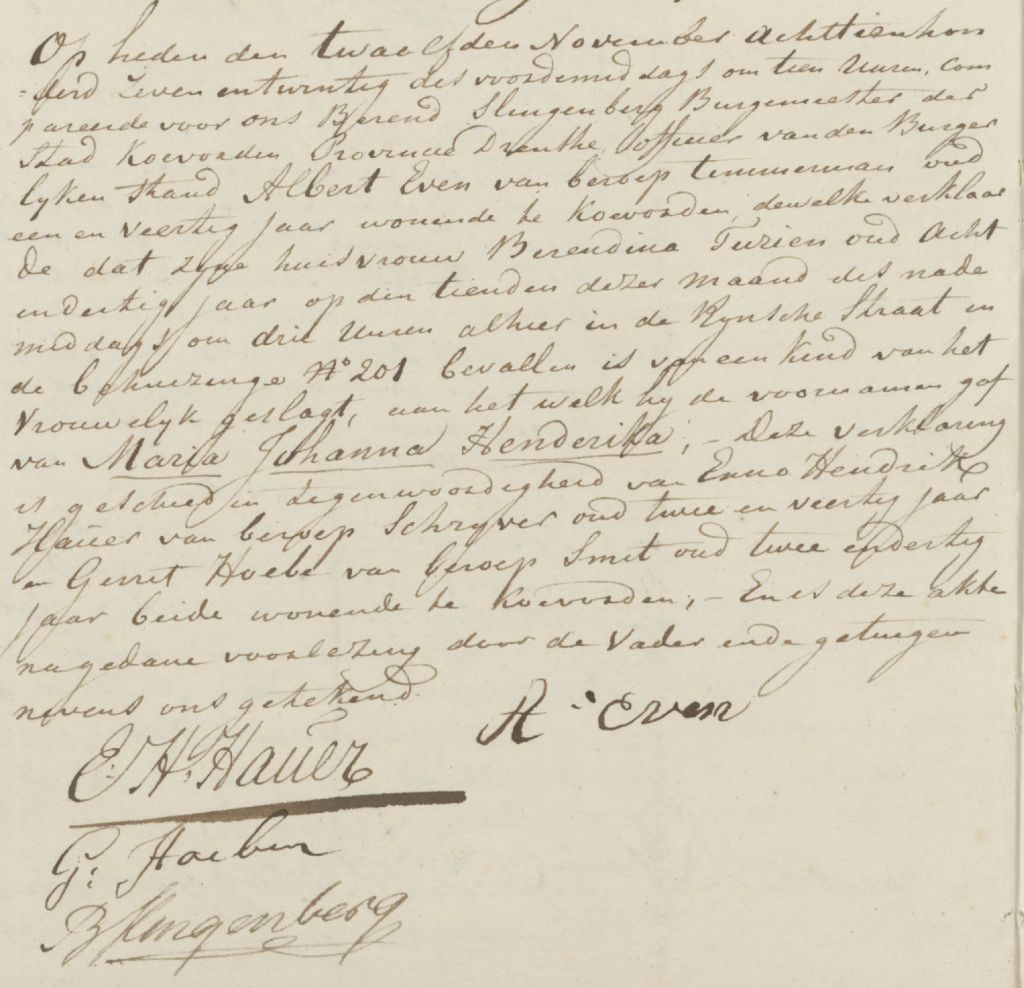 Op heden den twaalfden November achttienhon
=derd Zeven entwintig des voordemiddags om tien Uuren, com
pareerde voor ons Berend Slingenberg Burgemeester der
Stad Koevorden Provincie Drenthe, Officier van den Burger
lyken Stand Albert Even van beroep timmerman oud
een en veertig jaar wonende te Koevorden, dewelke verklaar
de dat zyne huisvrouw Berendina Tuzien oud Acht
endertig jaar op den tienden dezer maand des nade
middags om drie Uuren alhier in de Rynsche Straat in
de behuizinge No 201 bevallen is van een kind van het
Vrouwelyk geslagt, aan het welk hy de voornamen gaf
van Maria Johanna Henderika; - Deze verklaring
is geschied in tegenwoordigheid van Enno Hendrik
Haüer van beroep Schryver oud twee en veertig jaar
en Gerret Hoebe van beroep Smit oud twee endertig
jaar beide wonende te Koevorden; - En is deze akte
na gedane voorlezing door de Vader ende getuigen
nevens ons getekend.
A: Even
E: H: Haüer
G: Hoeben
B Slingenberg